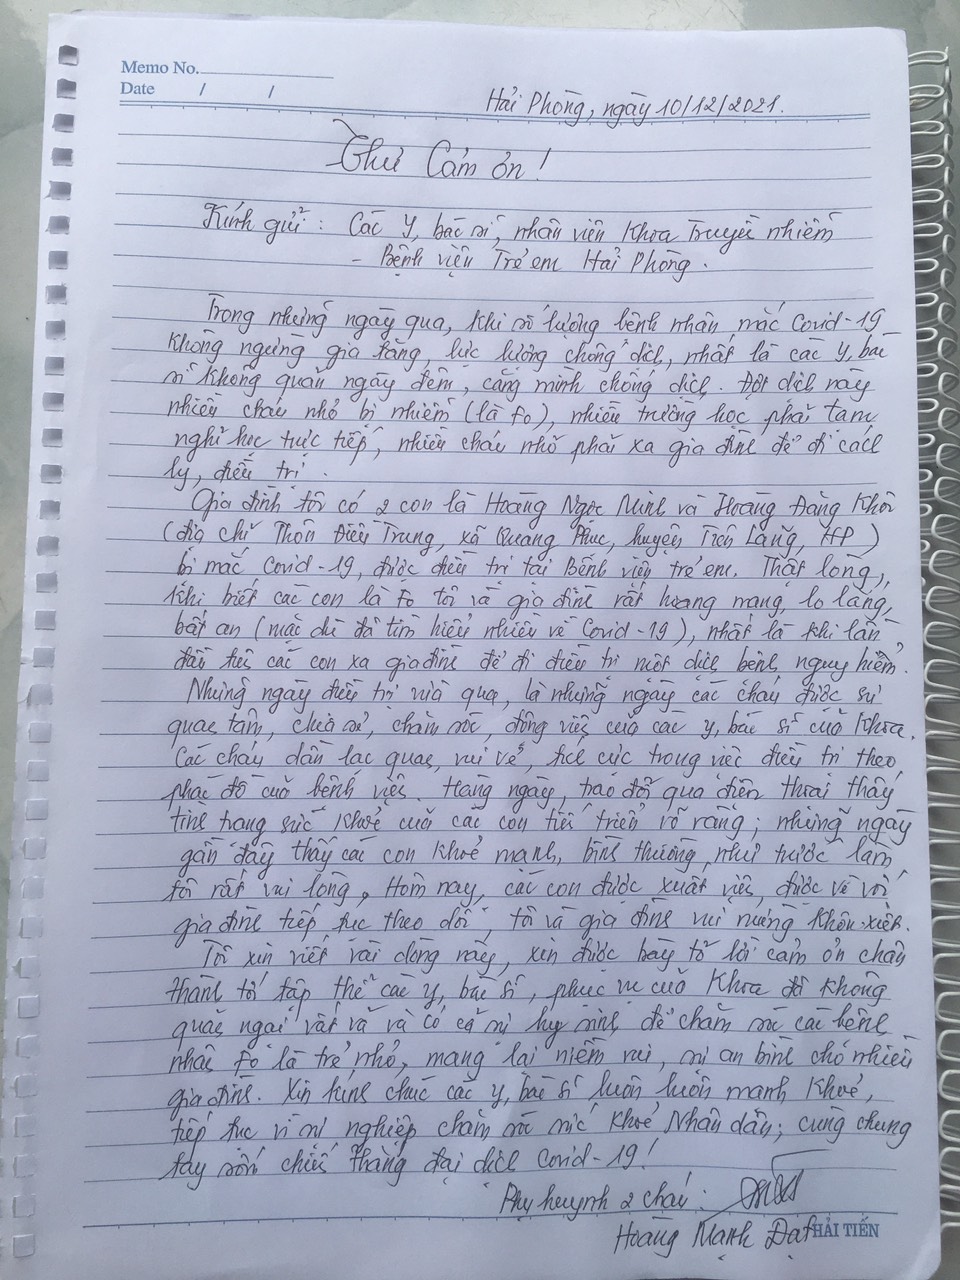 Memo No.
Date / /
Hải Phòng, ngày 10/12/2021.
Thư Cảm ơn!
Kính gửi: Các Y, bác sĩ, nhân viên Khoa Truyền nhiễm
- Bệnh viện Trẻ em Hải Phòng.
Trong những ngày qua, khi số lượng bệnh nhân mắc Covid-19
không ngừng gia tăng, lực lượng chống dịch, nhất là các y, bác
sĩ không quản ngày đêm, căng mình chống dịch. Đợt dịch này
nhiều cháu nhỏ bị nhiễm (là Fo), nhiều trường học phải tạm
nghỉ học trực tiếp, nhiều cháu nhỏ phải xa gia đình để đi cách
ly, điều trị.
Gia đình tôi có 2 con là Hoàng Ngọc Minh và Hoàng Đăng Khôi
(địa chỉ Thôn Điều Trung, xã Quang Phục, huyện Tiên Lãng, HP)
bị mắc Covid-19, được điều trị tại Bệnh viện trẻ em. Thật lòng,
khi biết các con là Fo tôi và gia đình rất hoang mang, lo lắng,
bất an (mặc dù đã tìm hiểu nhiều về Covid-19), nhất là khi lần
đầu tiên các con xa gia đình để đi điều trị một dịch bệnh nguy hiểm.
Những ngày điều trị vừa qua, là những ngày các cháu được sự
quan tâm, chia sẻ, chăm sóc, động viên của các y, bác sĩ của Khoa.
Các cháu dần lạc quan, vui vẻ, tích cực trong việc điều trị theo
phác đồ của bệnh viện. Hàng ngày, trao đổi qua điện thoại thấy
tình trạng sức khoẻ của các con tiến triển rõ ràng; những ngày
gần đây thấy các con khoẻ mạnh, bình thường như trước làm
tôi rất vui lòng. Hôm nay, các con được xuất viện, được về với
gia đình tiếp tục theo dõi, tôi và gia đình vui mừng khôn xiết.
Tôi xin viết vài dòng này, xin được bày tỏ lời cảm ơn chân
thành tới tập thể các y, bác sĩ, phục vụ của Khoa đã không
quản ngại vất vả và có cả sự hy sinh để chăm sóc các bệnh
nhân Fo là trẻ nhỏ, mang lại niềm vui, sự an bình cho nhiều
gia đình. Xin kính chúc các y, bác sĩ luôn luôn mạnh khoẻ,
tiếp tục vì sự nghiệp chăm sóc sức khoẻ Nhân dân; cùng chung
tay sớm chiến thắng đại dịch Covid-19!
Phụ huynh 2 cháu:
Hoàng Mạnh Đạt
HẢI TIẾN